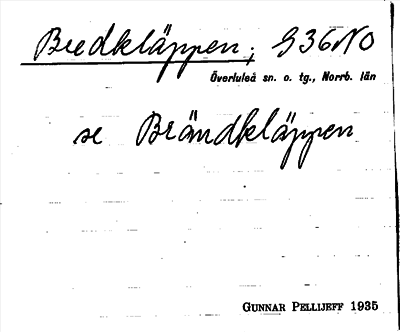 Bredkläppen; G36NO
Överluleå sn. o. tg., Norrb. län
se Brändkläppen
GUNNAR PELLIJEFF 1935